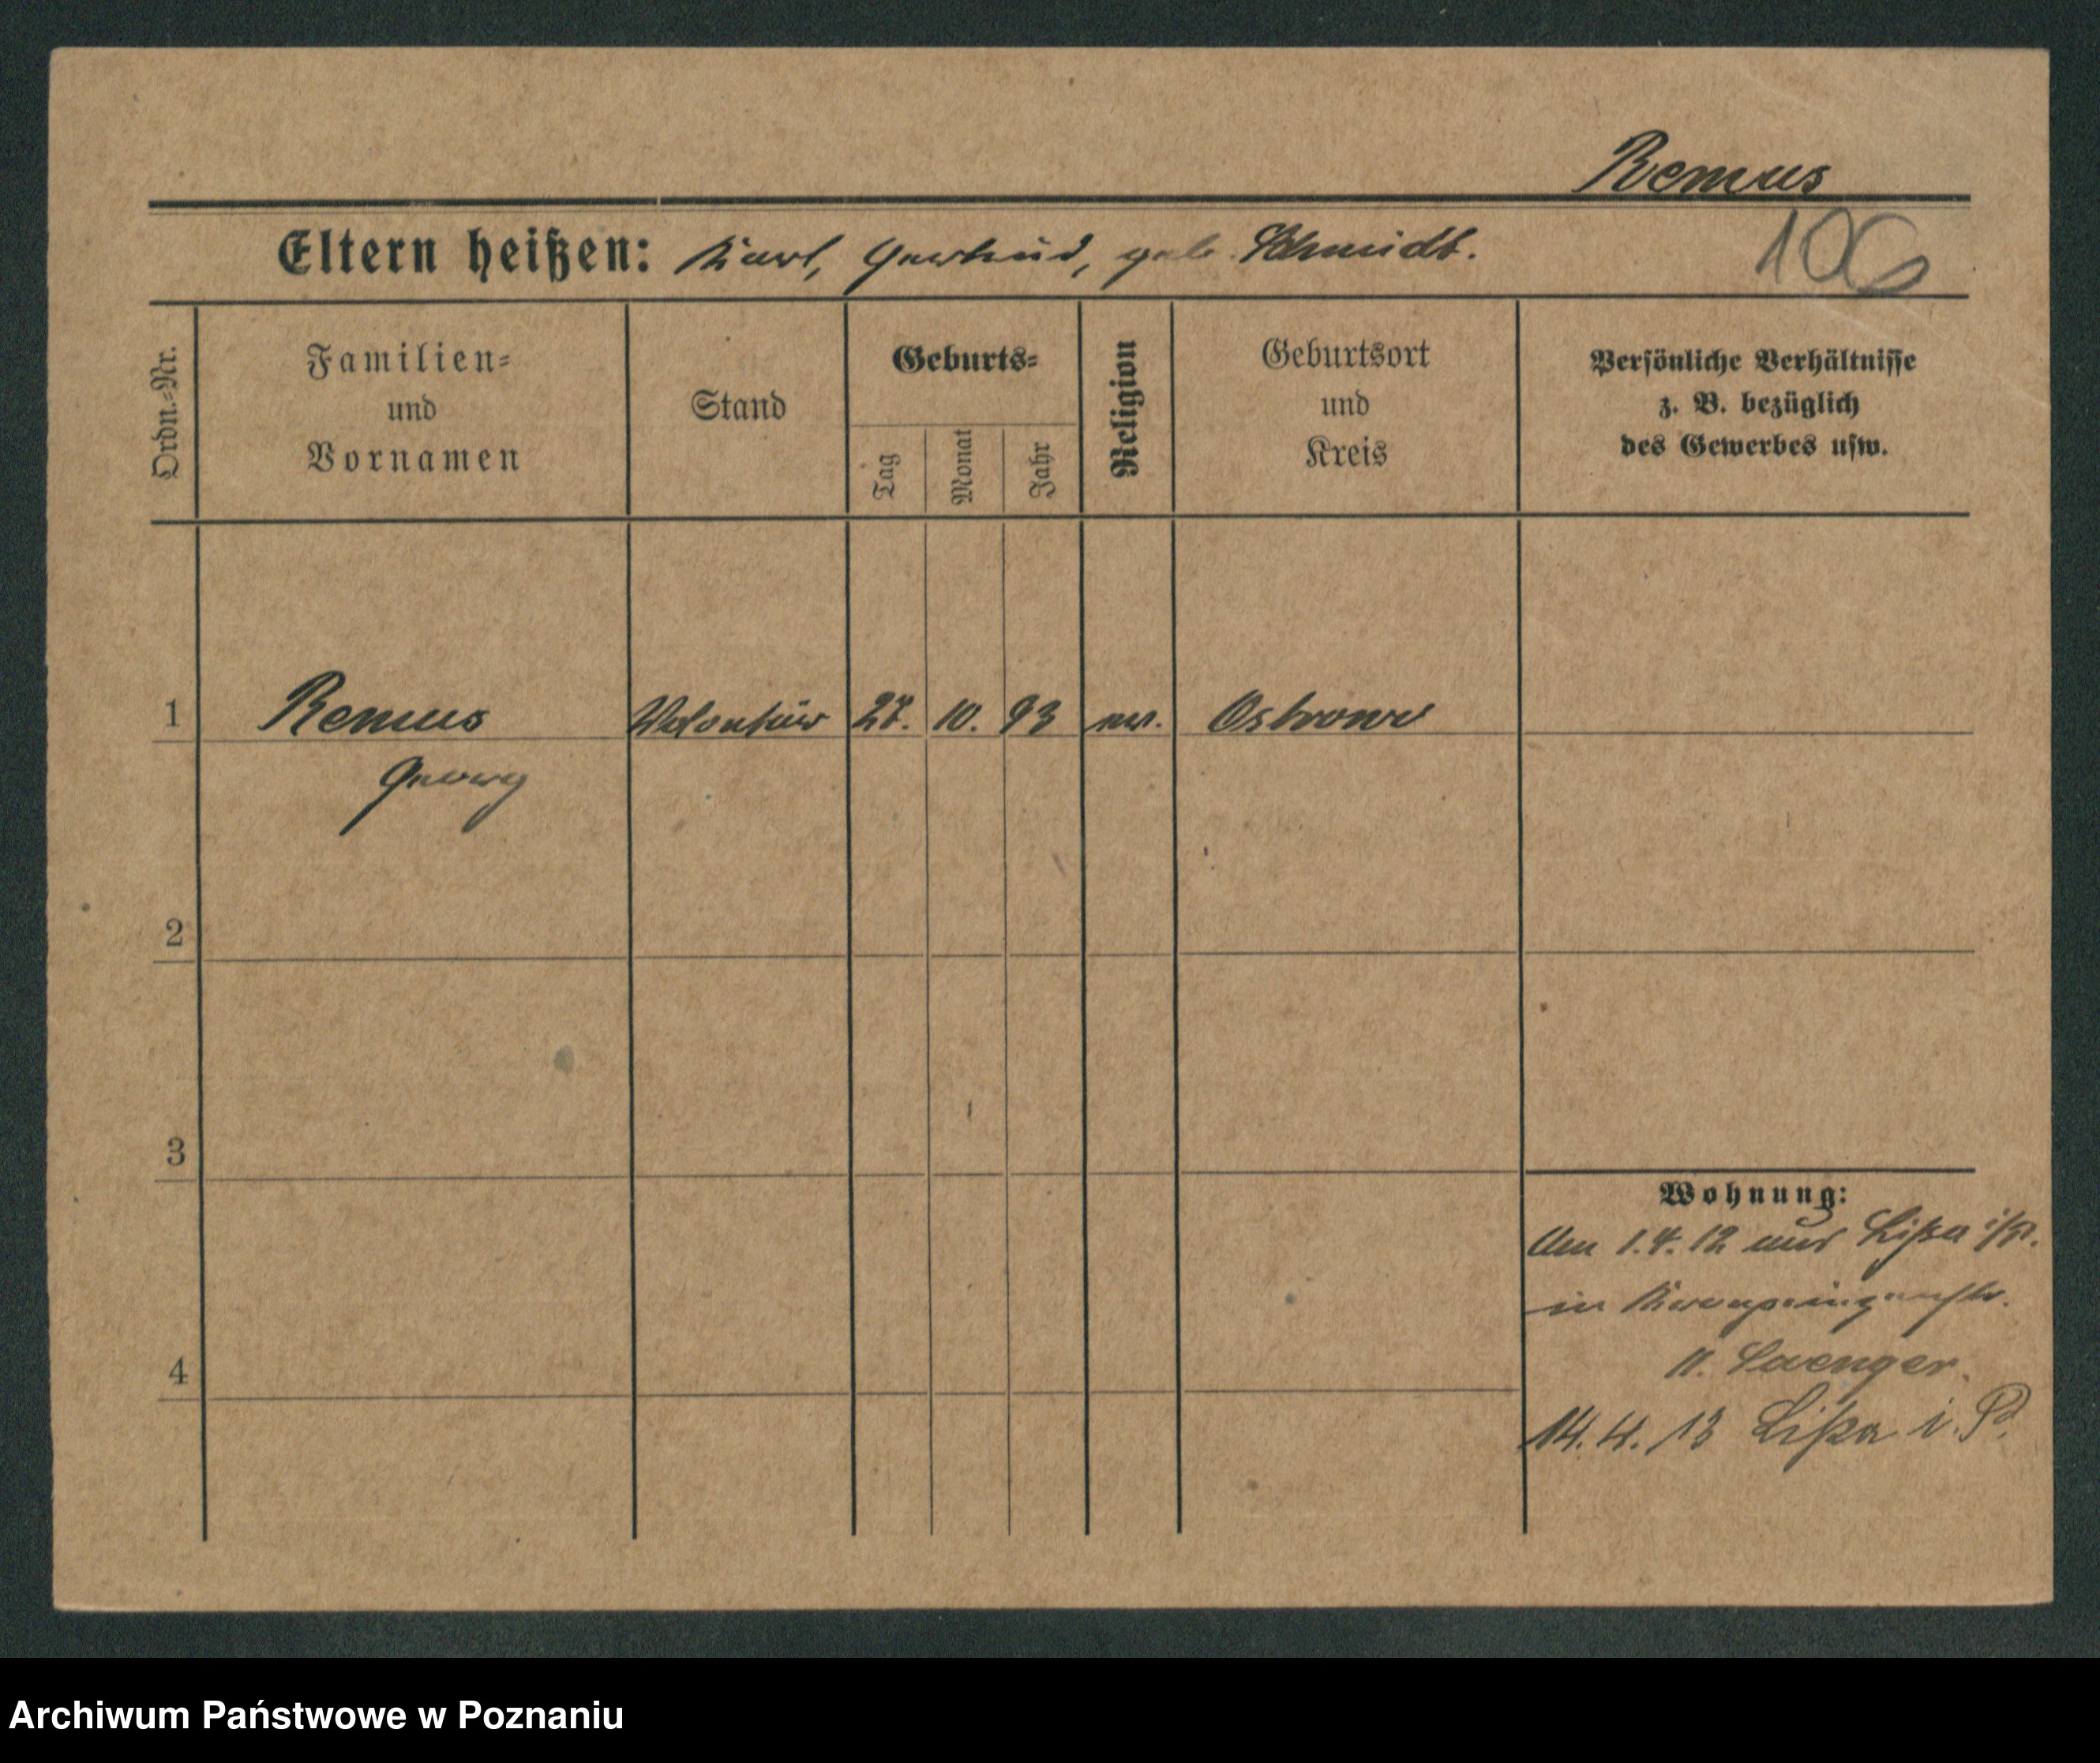 Remus
Eltern heißen: Karl, Gertrud, geb. Schmidt.
106
Ordn.-Nr.
Familien-
und
Vornamen
Stand
Geburts-
Tag
Monat
Jahr
Religion
Geburtsort
und
Kreis
Persönliche Verhältnisse
z. B. bezüglich
des Gewerbes usw.
1 Remus Volontär 27. 10. 93 ev. Ostrowo
Georg
2
3
4
Wohnung:
Am 1.4.12 aus Lißa i/P.
in Kronprinzenstr.
11. Saenger.
14.4.13 Lißa i. P.
Archiwum Państwowe w Poznaniu